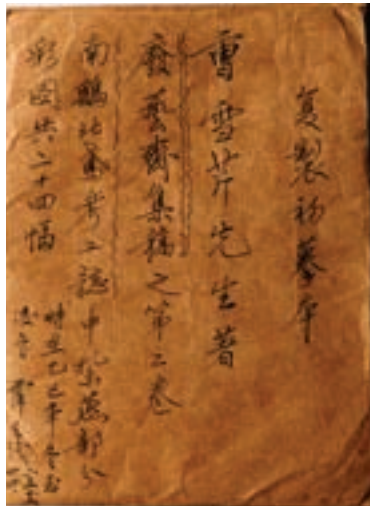 复製初摹本
曹雪芹先生著
廢藝齋集稿之第二卷
南鷂北鳶考工誌中紮燕部分
彩圖共二十四幅
時在乙巳年冬